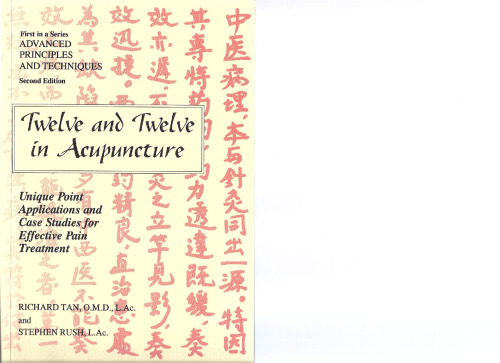 First in a Series
ADVANCED
PRINCIPLES
AND TECHNIQUES
Second Edition
Twelve and Twelve
in Acupuncture
Unique Point
Applications and
Case Studies for
Effective Pain
Treatment
RICHARD TAN, O.M.D., L.Ac.
and
STEPHEN RUSH, L.Ac.
中医病理,本与針灸同出一源。特因
其專恃药 药力透達既緩,奏
效亦遲,不 灸之立竿見影,奏
效迅捷。西 药精良直治患處
為其缺陷 多有西医不能